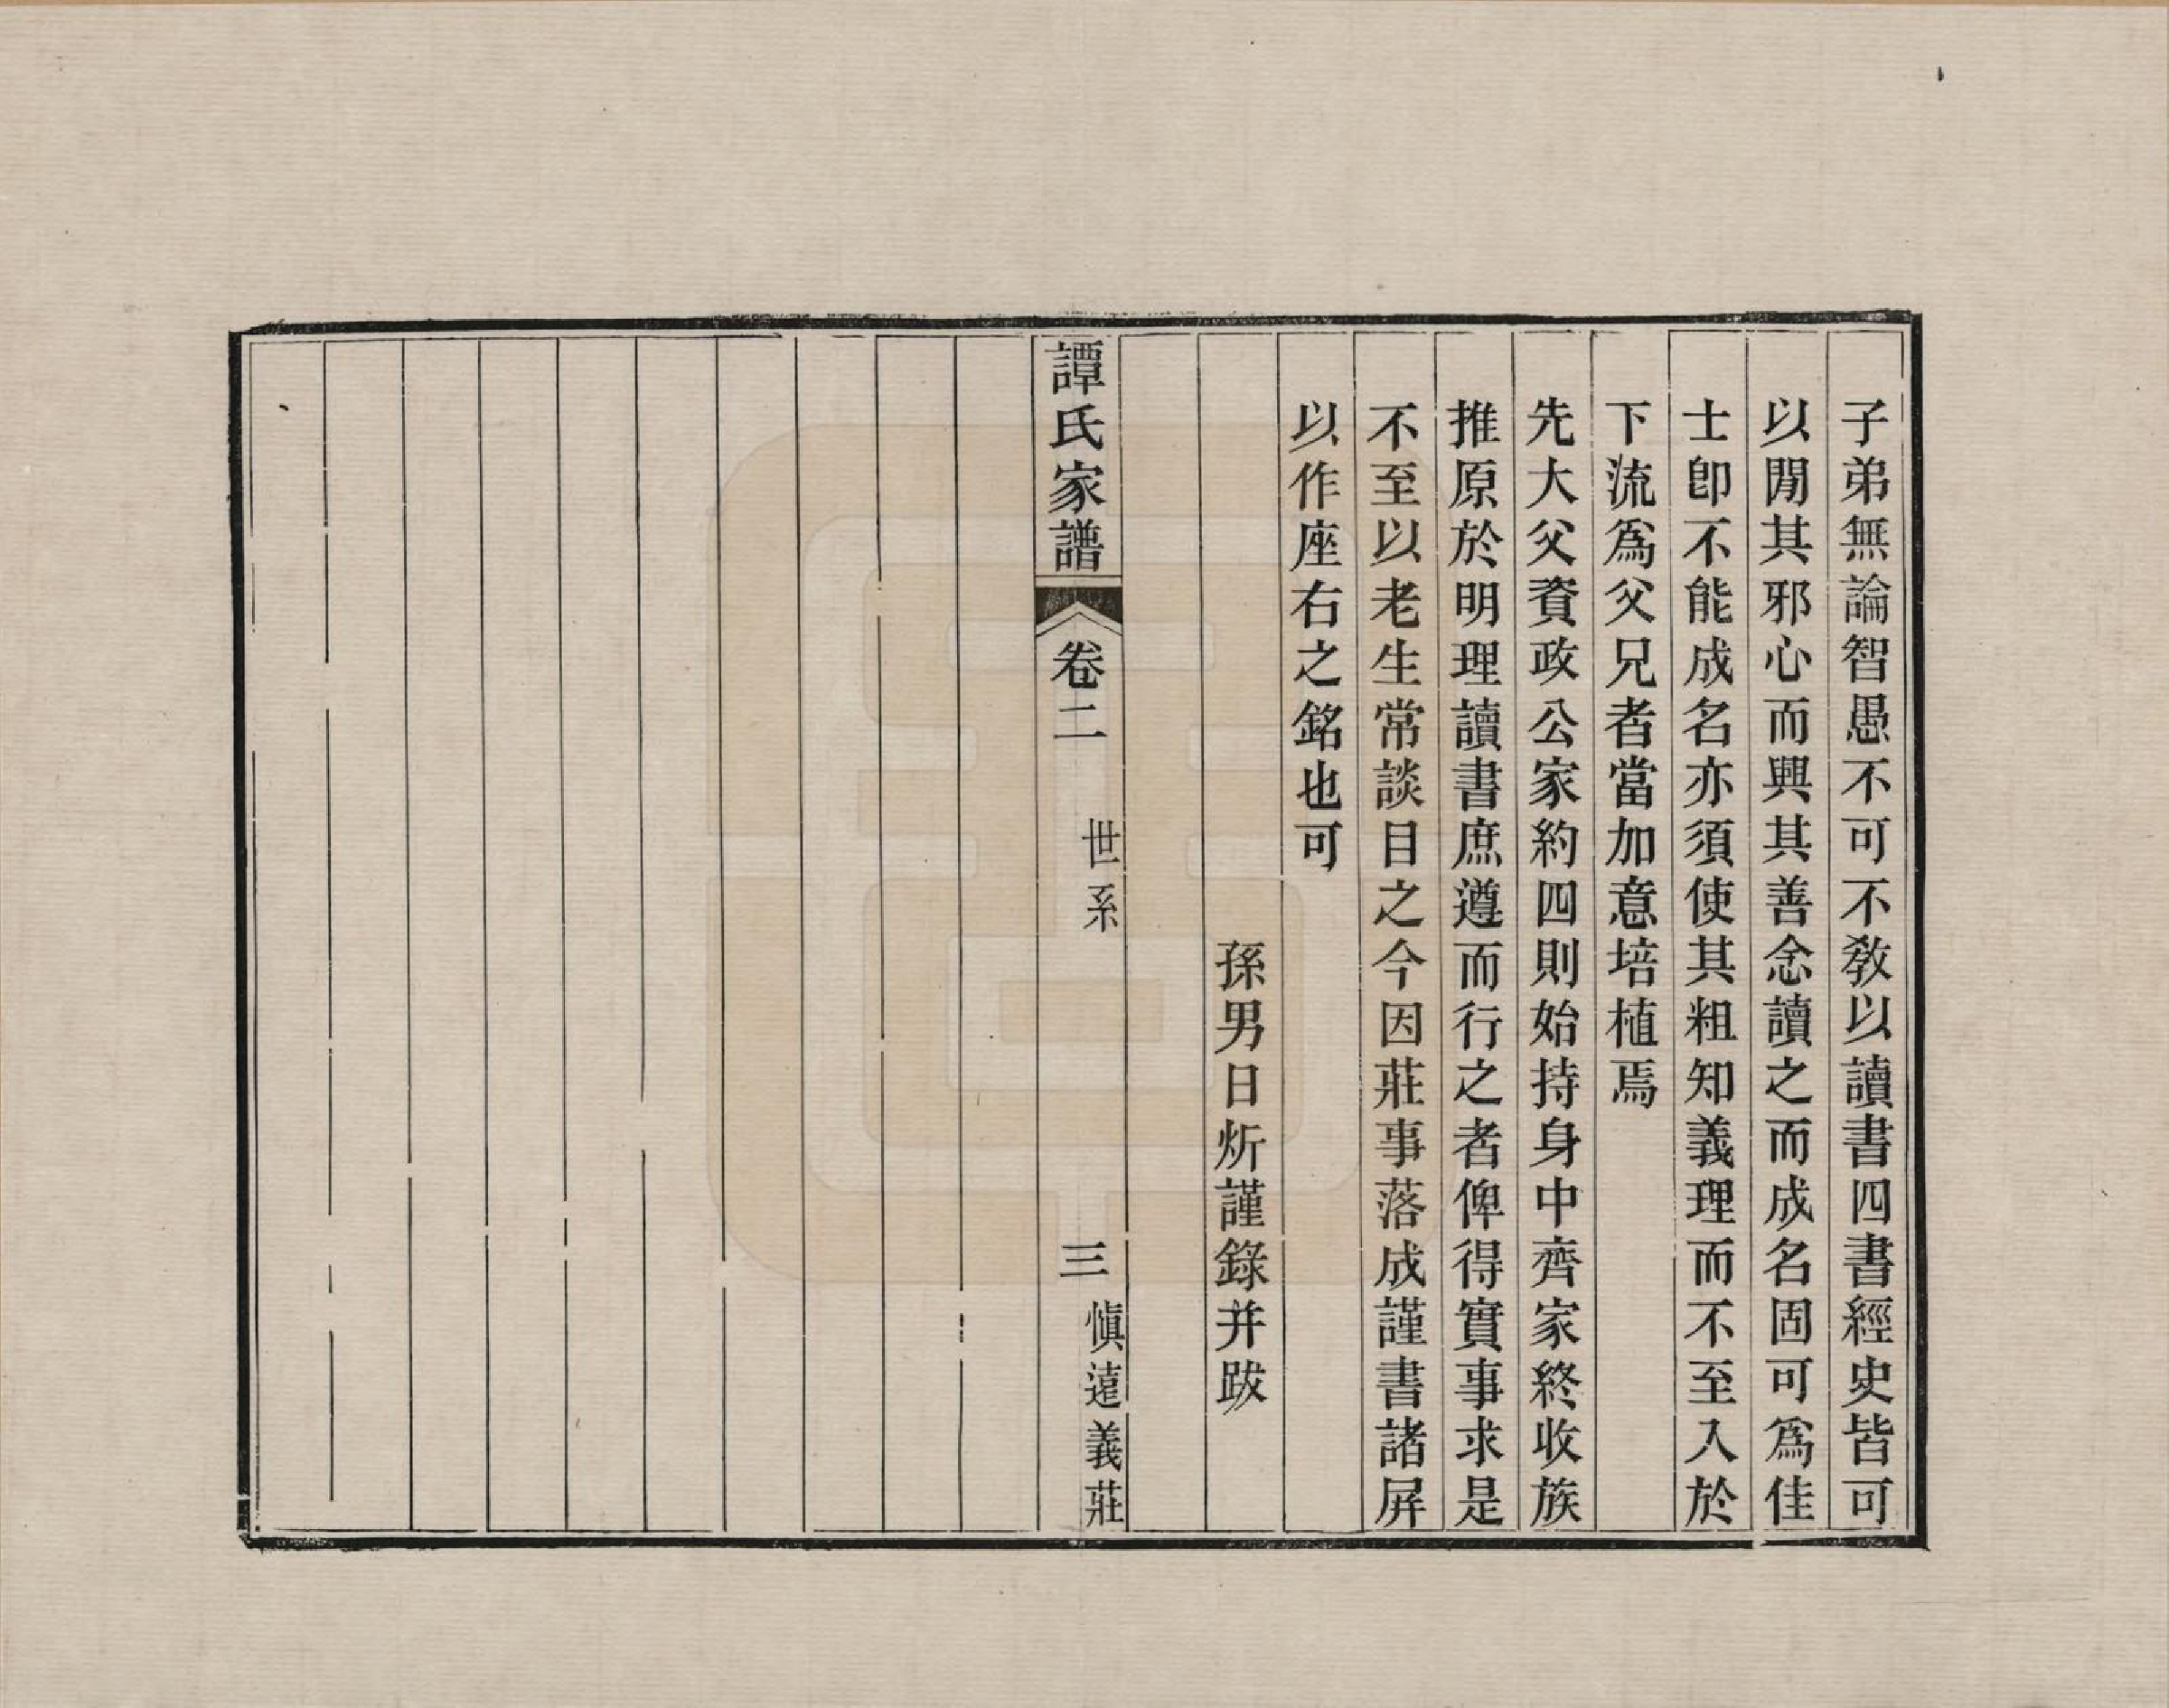 子弟無論智愚不可不敎以讀書四書經史皆可
以閒其邪心而興其善念讀之而成名固可爲佳
士卽不能成名亦須使其粗知義理而不至入於
下流爲父兄者當加意培植焉
先大父資政公家約四則始持身中齊家終收族
推原於明理讀書庶遵而行之者俾得實事求是
不至以老生常談目之今因莊事落成謹書諸屏
以作座右之銘也可
孫男日炘謹錄并跋
譚氏家譜
卷二
世系
三
愼遠義莊